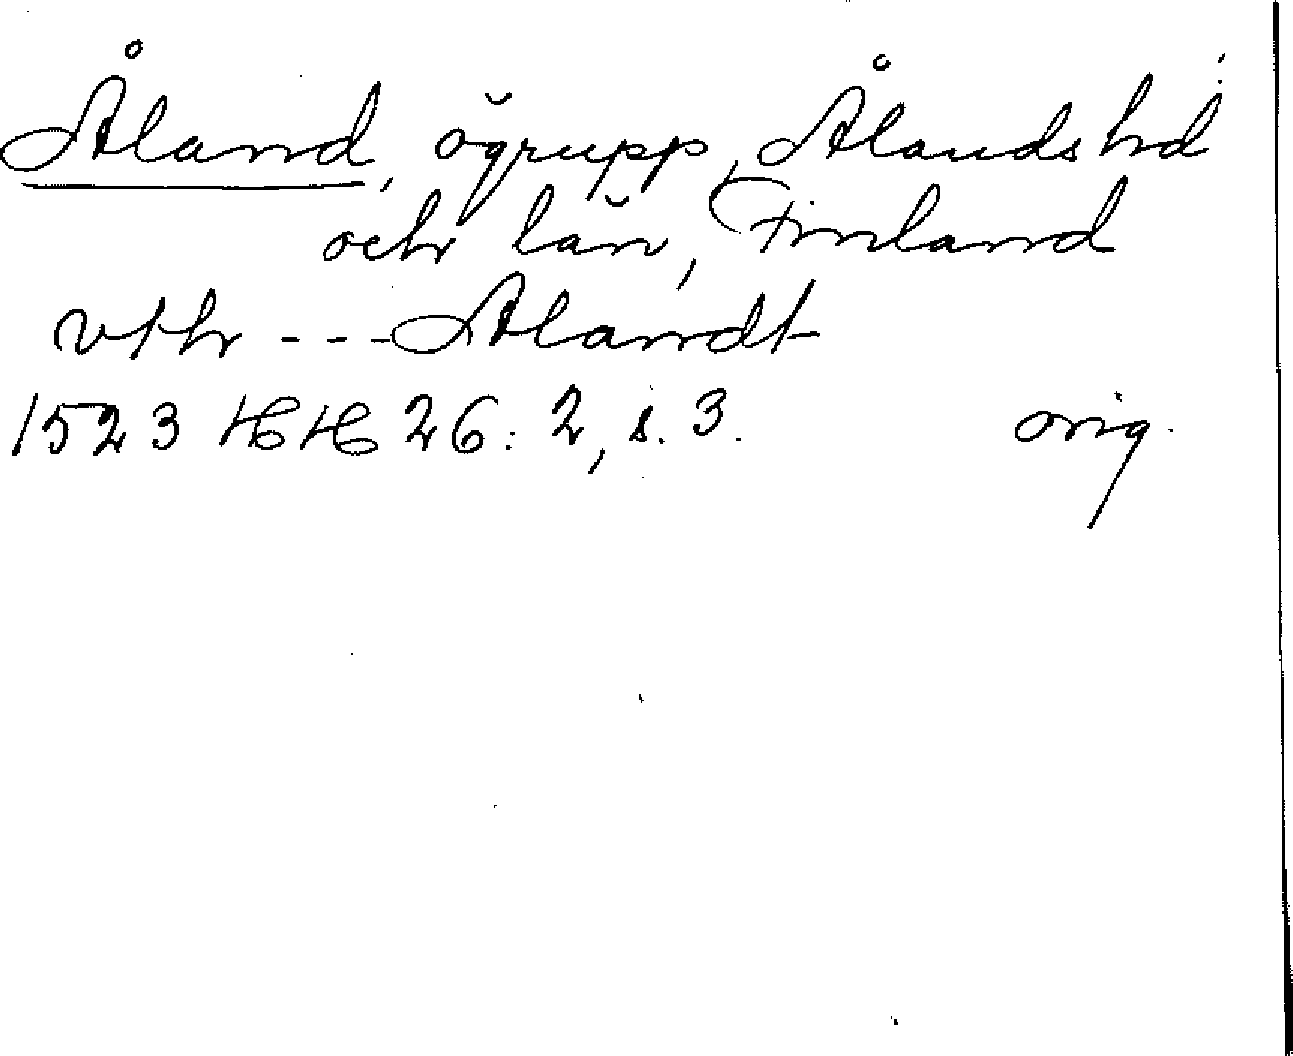 Åland, ögrupp, Ålands hd
och län, Finland
vthr --- Alandt
1523 HH 26: 2, s. 3. orig.